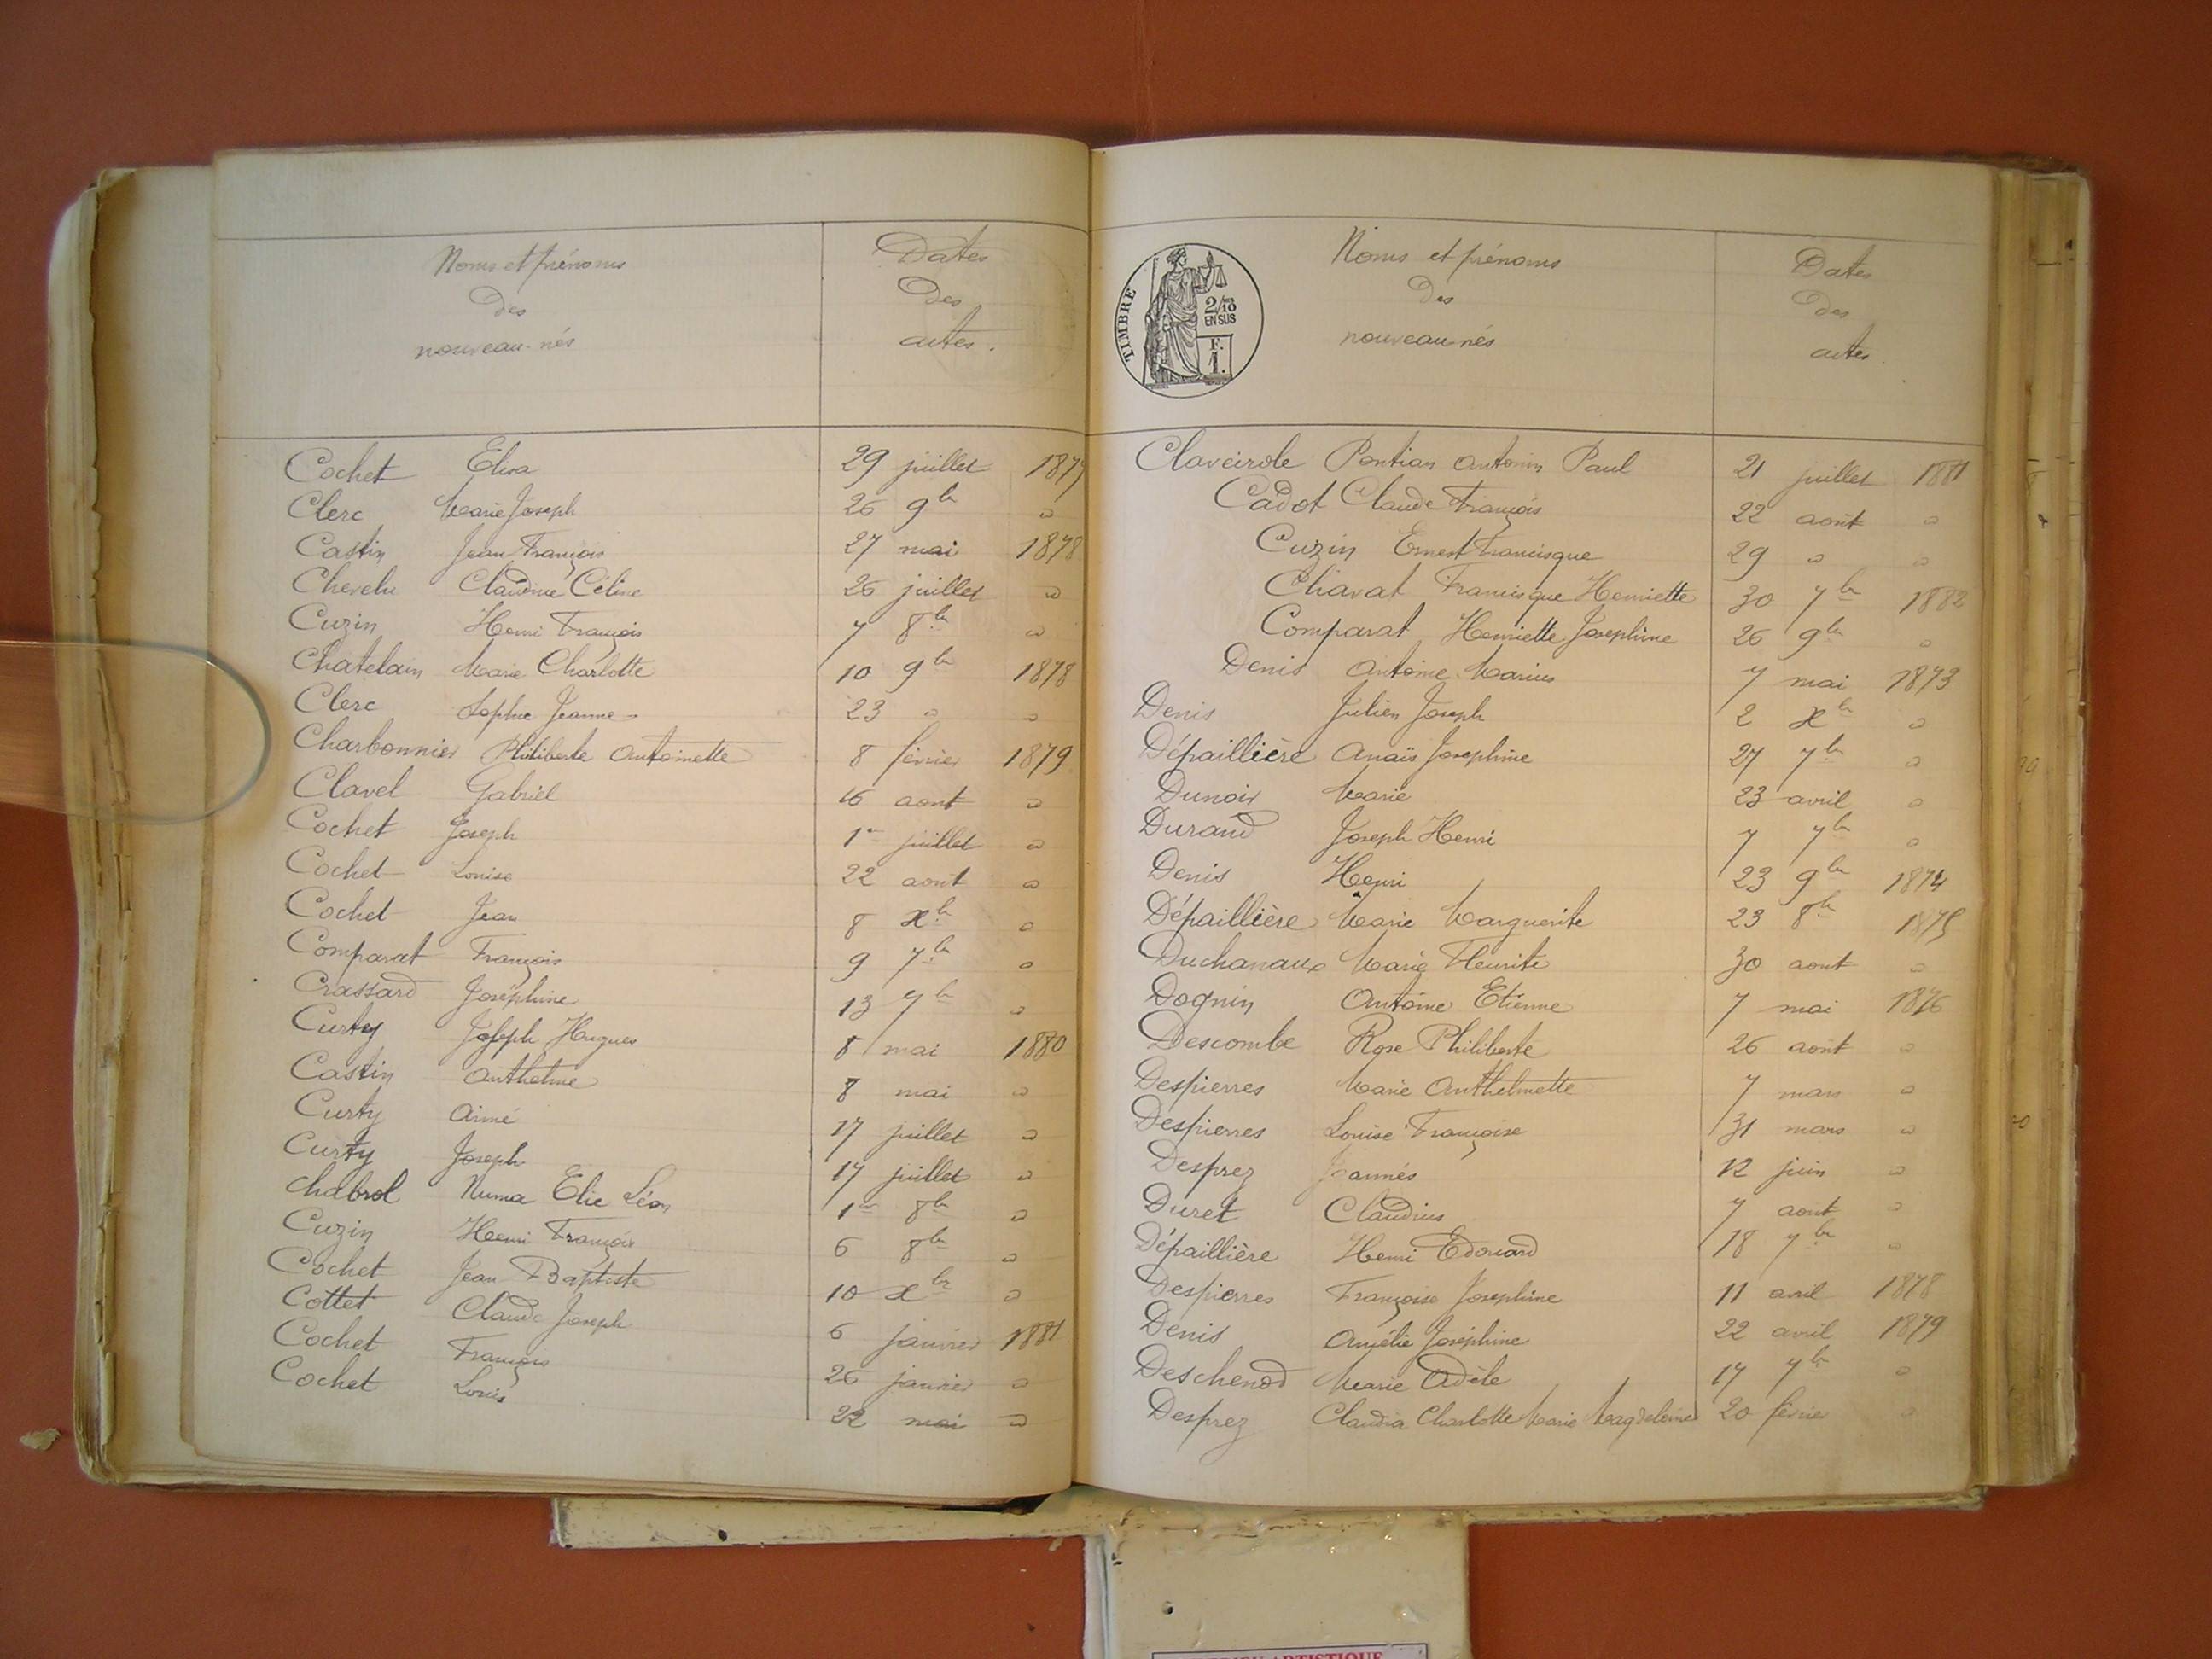 Noms et prénoms
des
nouveau-nés
Dates
des
actes.
Cochet Elisa 29 juillet 1877
Clerc Marie Joseph 26 9bre "
Castin Jean François 27 mai 1878
Chevelu Claudine Céline 26 juillet "
Cuzin Henri François 7 8bre "
Chatelain Marie Charlotte 10 9bre 1878
Clerc Sophie Jeanne 23 " "
Charbonnier Philiberte Antoinette 8 février 1879
Clavel Gabriel 16 aout "
Cochet Joseph 1er juillet "
Cochet Louise 22 aout "
Cochet Jean 8 Xbre "
Comparat François 9 7bre "
Crassard Joséphine 13 7bre "
Curty Joseph Hugues 8 mai 1880
Castin Anthelme 8 mai "
Curty Aimé 17 juillet "
Curty Joseph 17 juillet "
Chabrol Numa Elie Léon 1er 8bre "
Cuzin Henri François 6 8bre "
Cochet Jean Baptiste 10 Xbre "
Cottet Claude Joseph 6 janvier 1881
Cochet François 26 janvier "
Cochet Louis 22 mai "
TIMBRE
2/10
EN SUS
F.
1.
Noms et prénoms
des
nouveau-nés
Dates
des
actes.
Claveirole Pontian Antonin Paul 21 juillet 1881
Cadot Claude François 22 août "
Cuzin Ernest Francisque 29 " "
Chavat Francisque Henriette 30 7bre 1882
Comparat Henriette Josephine 26 9bre "
Denis Antoine Marius 7 mai 1873
Denis Julien Joseph 2 Xbre "
Dépaillière Anaïs Josephine 27 7bre "
Dunoir Marie 23 avril "
Durand Joseph Henri 7 7bre "
Denis Henri 23 9bre 1874
Dépaillière Marie Marguerite 23 8bre 1875
Duchanaux Marie Fleurite 30 aout "
Dognin Antoine Etienne 7 mai 1876
Descombe Rose Philiberte 26 août "
Despierres Marie Anthelmette 7 mars "
Despierres Louise Françoise 31 mars "
Desprez Joannés 12 juin "
Duret Claudius 7 aout "
Dépaillière Henri Edouard 18 7bre "
Despierres Françoise Josephine 11 avril 1878
Denis Amélie Joséphine 22 avril 1879
Deschenod Marie Adèle 17 7bre "
Desprez Claudia Charlotte Marie Magdeleine 20 février "